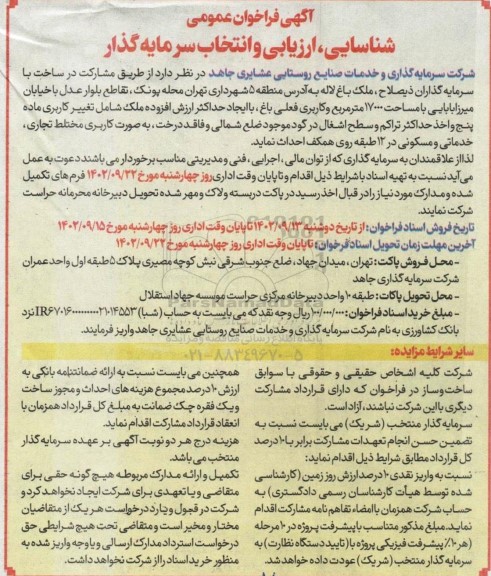 آگهی فراخوان عمومی
شناسایی، ارزیابی و انتخاب سرمایه گذار
شرکت سرمایه گذاری و خدمات صنایع روستایی عشایری جاهد در نظر دارد از طریق مشارکت در ساخت با
سرمایه گذاران ذیصلاح، ملک باغ لاله به آدرس منطقه ۵ شهرداری تهران محله پونک، تقاطع بلوار عدل با خیابان
میرزابابایی با مساحت ۱۷۰۰۰ مترمربع و کاربری فعلی باغ، با ایجاد حداکثر ارزش افزوده ملک شامل تغییر کاربری ماده
پنج و اخذ حداکثر تراکم و سطح اشغال در گود موجود ضلع شمالی و فاقد درخت، به صورت کاربری مختلط تجاری،
خدماتی و مسکونی در ۱۲ طبقه روی همکف احداث نماید.
لذا از علاقمندان به سرمایه گذاری که از توان مالی، اجرایی، فنی و مدیریتی مناسب برخوردار می باشند دعوت به عمل
می آید نسبت به تهیه اسناد با شرایط ذیل اقدام و تا پایان وقت اداری روز چهارشنبه مورخ ۱۴۰۲/۰۹/۲۲ فرم های تکمیل
شده و مدارک مورد نیاز را در قبال اخذ رسید در پاکت دربسته و لاک و مهر شده تحویل دبیرخانه محرمانه حراست
شرکت نمایند.
تاریخ فروش اسناد فراخوان: از تاریخ دوشنبه ۱۴۰۲/۰۹/۱۳ تا پایان وقت اداری روز چهارشنبه مورخ ۱۴۰۲/۰۹/۱۵
آخرین مهلت زمان تحویل اسناد فراخوان: تا پایان وقت اداری روز چهارشنبه مورخ ۱۴۰۲/۰۹/۲۲
- محل فروش پاکت: تهران، میدان جهاد، ضلع جنوب شرقی نبش کوچه مصیری پلاک ۵ طبقه اول واحد عمران
شرکت سرمایه گذاری جاهد
- محل تحویل پاکات: طبقه ۱۰ واحد دبیرخانه مرکزی حراست موسسه جهاد استقلال
- مبلغ خرید اسناد فراخوان: ۱۰۰/۰۰۰/۰۰۰ ریال وجه نقد که می بایست به حساب (شبا) نزد
بانک کشاورزی به نام شرکت سرمایه گذاری و خدمات صنایع روستایی عشایری جاهد واریز فرمایند.
سایر شرایط مزایده:
شرکت کلیه اشخاص حقیقی و حقوقی با سوابق
ساخت و ساز در فراخوان که دارای قرارداد مشارکت
دیگری با این شرکت نباشند، آزاد است.
سرمایه گذار منتخب (شریک) می بایست نسبت به
تضمین حسن انجام تعهدات مشارکت برابر با ۱۰ درصد
کل قرارداد مطابق شرایط ذیل اقدام نماید:
نسبت به واریز نقدی ۱۰ درصد ارزش روز زمین (کارشناسی
شده توسط هیأت کارشناسان رسمی دادگستری) به
حساب شرکت همزمان با امضاء تفاهم نامه مشارکت اقدام
نماید. مبلغ مذکور متناسب با پیشرفت پروژه در ۱۰ مرحله
(هر ۱۰٪ پیشرفت فیزیکی پروژه با تایید دستگاه نظارت) به
سرمایه گذار منتخب (شریک) عودت داده خواهد شد.
همچنین می بایست نسبت به ارائه ضمانتنامه بانکی به
ارزش ۱۰ درصد مجموع هزینه های احداث و مجوز ساخت
و یک فقره چک ضمانت به مبلغ کل قرارداد همزمان با
انعقاد قرارداد مشارکت اقدام نماید.
هزینه درج هر دو نوبت آگهی بر عهده سرمایه گذار
منتخب می باشد.
تکمیل و ارائه مدارک مربوطه هیچ گونه حقی برای
متقاضی و یا تعهدی برای شرکت ایجاد نخواهد کرد و
شرکت در قبول و یا رد درخواست هر یک از متقاضیان
مختار و مخیر است و متقاضی تحت هیچ شرایطی حق
درخواست استرداد مدارک ارسالی و یا وجه واریز شده به
منظور خرید اسناد را از شرکت نخواهد داشت.